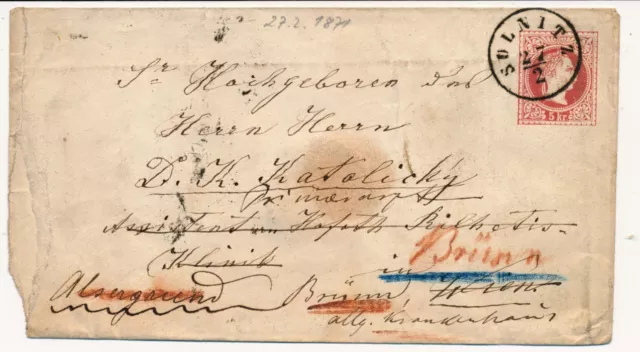 27.2.1871
SOLNITZ
27
2
5 kr.
Sr Hochgeboren des
Herrn Herrn
D. K. Katolický
Primararzt
Assistent von Hofrath
Klinik in Brünn
Alsergrund Brünn, Wien
allg. Krankenhaus